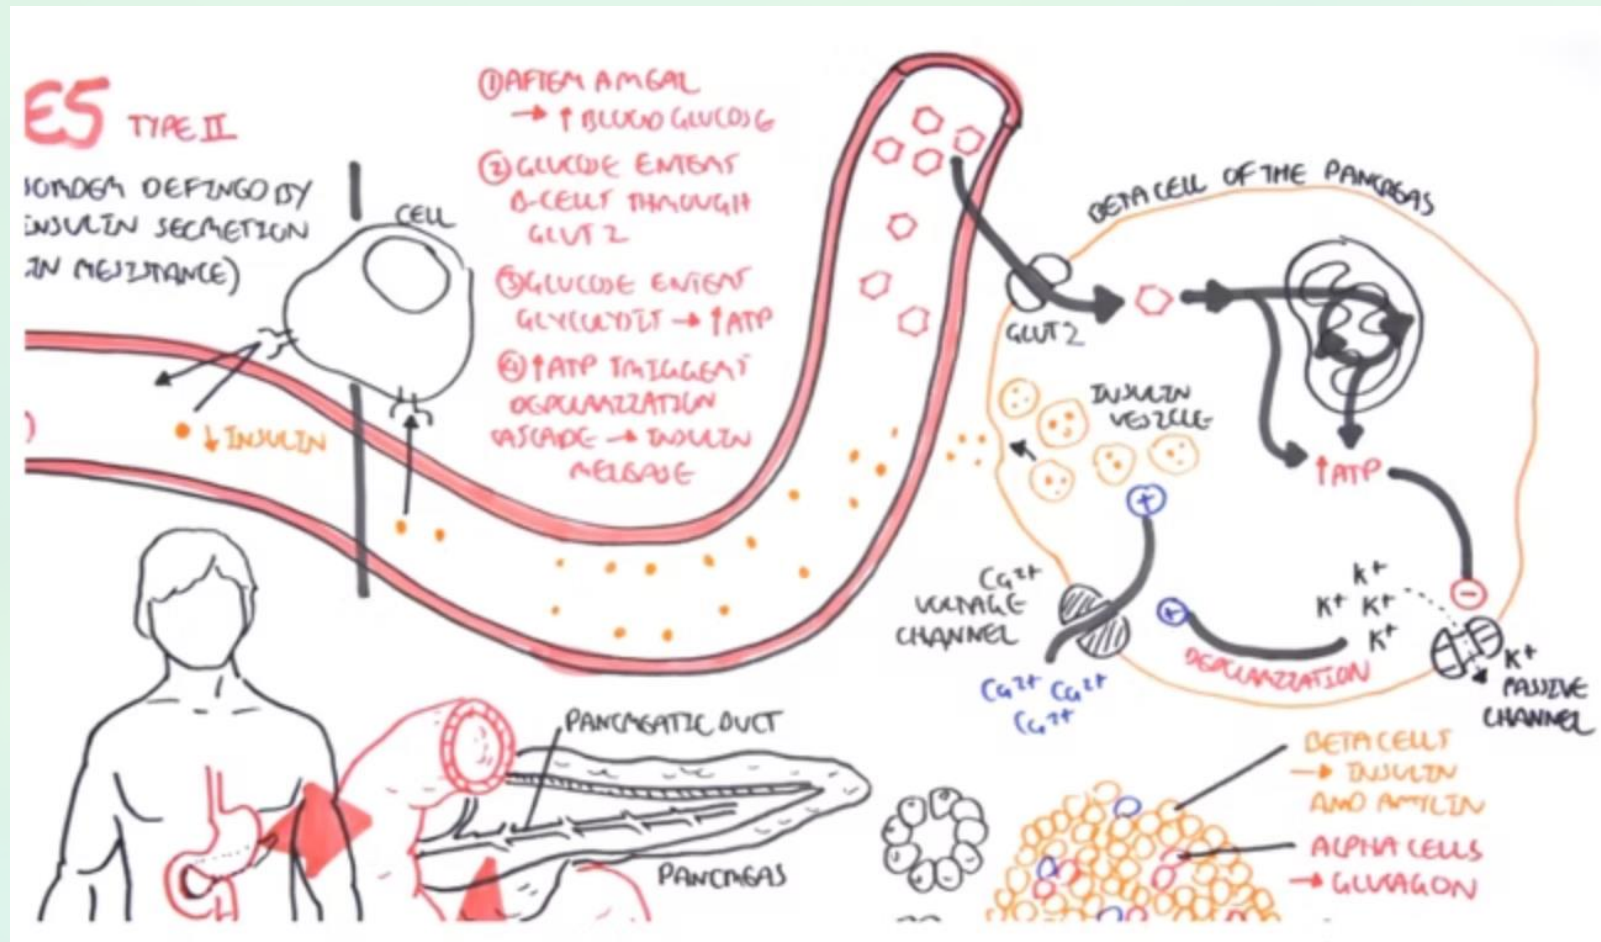 ES TYPE II
ORDER DEFINED BY
INSULIN SECRETION
IN RESISTANCE)
CELL
↓ INSULIN
① AFTER A MEAL
→ ↑ BLOOD GLUCOSE
② GLUCOSE ENTERS
β-CELLS THROUGH
GLUT 2
③ GLUCOSE ENTERS
GLYCOLYSIS → ↑ ATP
④ ↑ ATP TRIGGERS
DEPOLARIZATION
CASCADE → INSULIN
RELEASE
BETA CELL OF THE PANCREAS
GLUT 2
INSULIN
VESICLE
↑ ATP
Ca²⁺
VOLTAGE
CHANNEL
Ca²⁺ Ca²⁺
Ca²⁺
K⁺
K⁺ K⁺
K⁺
DEPOLARIZATION
K⁺
PASSIVE
CHANNEL
PANCREATIC DUCT
PANCREAS
BETA CELLS
→ INSULIN
AND AMYLIN
ALPHA CELLS
→ GLUCAGON